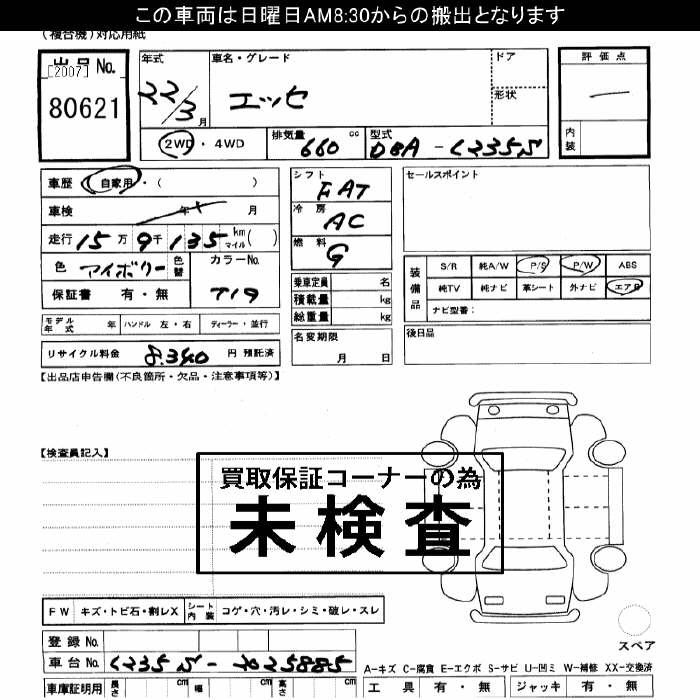 この車両は日曜日AM8:30からの搬出となります
(複合機)対応用紙
出品No.
[2007]
80621
年式 車名・グレード ドア
22/3月 エッセ 形状
2WD・4WD 排気量 660 cc 型式 DBA-L235S
評価点
内装
車歴 自家用・( )
車検 年 月
走行 15万9千135 km マイル( )
色 アイボリー 色替 カラーNo.
保証書 有・無 T19
シフト FAT
冷房 AC
燃料 G
乗車定員 名
積載量 kg
総重量 kg
セールスポイント
装備品 S/R 純A/W P/S P/W ABS
純TV 純ナビ 革シート 外ナビ エアB
ナビ型番:
モデル年式 年 ハンドル 左・右 ディーラー・並行
名変期限 月 日
後日品
リサイクル料金 8,340 円 預託済
【出品店申告欄(不良箇所・欠品・注意事項等)】
【検査員記入】
買取保証コーナーの為
未検査
FW キズ・トビ石・割レX シート内装 コゲ・穴・汚レ・シミ・破レ・スレ
スペア
登録No.
車台No. L235S-2025885
A-キズ C-腐食 E-エクボ S-サビ U-凹ミ W-補修 XX-交換済
車庫証明用 長さ cm 幅 cm 高さ cm
工具 有・無 ジャッキ 有・無